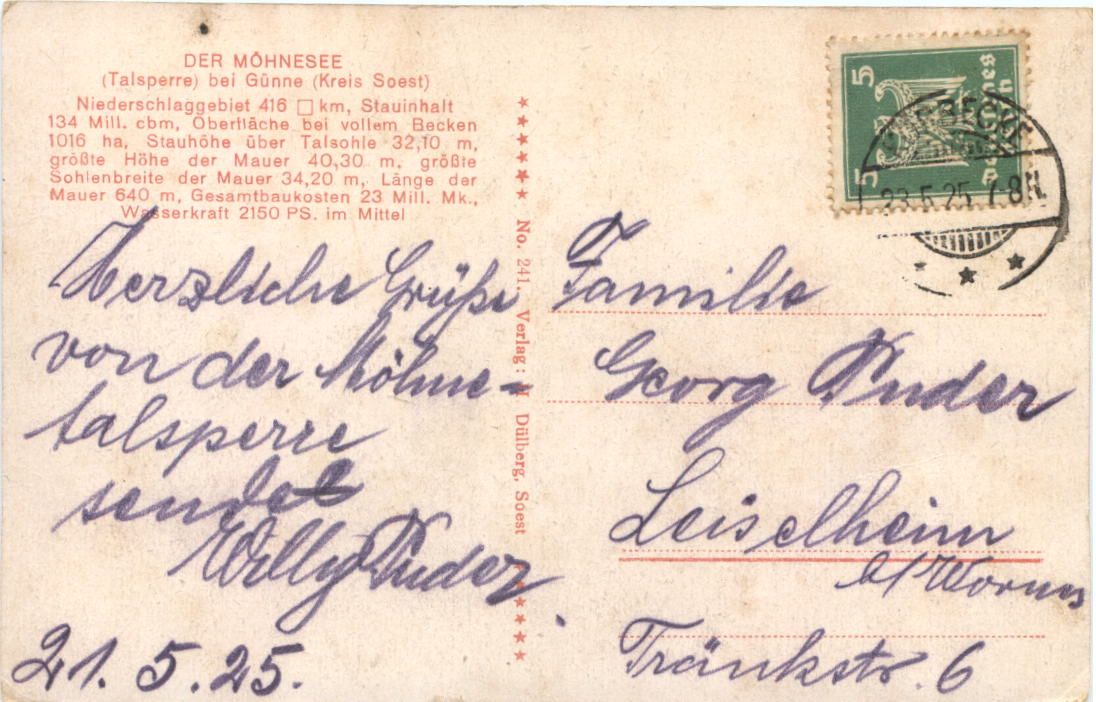 DER MÖHNESEE
(Talsperre) bei Günne (Kreis Soest)
Niederschlaggebiet 416 □ km, Stauinhalt
134 Mill. cbm, Oberfläche bei vollem Becken
1016 ha, Stauhöhe über Talsohle 32,10 m,
größte Höhe der Mauer 40,30 m, größte
Sohlenbreite der Mauer 34,20 m, Länge der
Mauer 640 m, Gesamtbaukosten 23 Mill. Mk.,
Wasserkraft 2150 PS. im Mittel
Herzliche Grüße
von der Möhne-
talsperre
sendet
Willy Puder
21.5.25.
No. 241. Verlag: Dülberg, Soest
5 5
Deutsches Reich
23.5.25 7-8N.
Familie
Georg Puder
Leiselheim
b/Worms
Tränkstr. 6